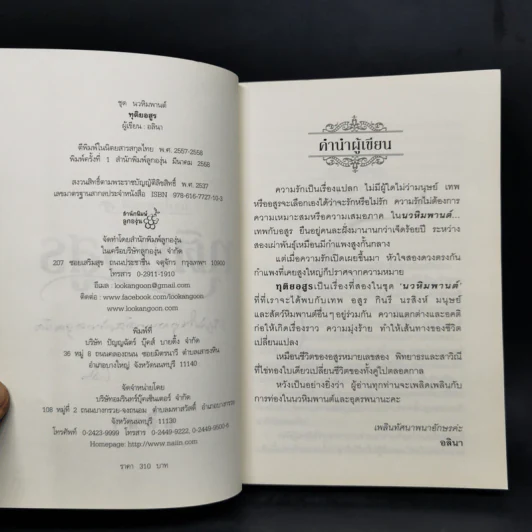 ชุด นวหิมพานต์
ทุติยอสูร
ผู้เขียน : อลินา
ตีพิมพ์ในนิตยสารสกุลไทย พ.ศ. 2557-2558
พิมพ์ครั้งที่ 1 สำนักพิมพ์ลูกองุ่น มีนาคม 2558
สงวนลิขสิทธิ์ตามพระราชบัญญัติลิขสิทธิ์ พ.ศ. 2537
เลขมาตรฐานสากลประจำหนังสือ ISBN 978-616-7727-10-2
สำนักพิมพ์
ลูกองุ่น
จัดทำโดยสำนักพิมพ์ลูกองุ่น
ในเครือบริษัทลูกองุ่น จำกัด
207 ซอยเสริมสุข ถนนประชาชื่น จตุจักร กรุงเทพฯ 10900
โทรสาร 0-2911-1910
อีเมล : lookangoon@gmail.com
ติดต่อ : www.facebook.com/lookangoon
www.lookangoon.com
พิมพ์ที่
บริษัท ปัญญมิตร บุ๊คส์ บายดิ้ง จำกัด
36 หมู่ 8 ถนนคลองถนน ซอยมิตรนาวี ตำบลบางสีทอง
อำเภอบางใหญ่ จังหวัดนนทบุรี 11140
จัดจำหน่ายโดย
บริษัทอมรินทร์บุ๊คเซ็นเตอร์ จำกัด
108 หมู่ที่ 2 ถนนบางกรวย-จงถนอม ตำบลมหาสวัสดิ์ อำเภอบางกรวย
จังหวัดนนทบุรี 11130
โทรศัพท์ 0-2423-9999 โทรสาร 0-2449-9222, 0-2449-9500-6
Homepage: http://www.naiin.com
ราคา 310 บาท
คำนำผู้เขียน
ความรักเป็นเรื่องแปลก ไม่มีผู้ใดไม่ว่ามนุษย์ เทพ
หรืออสูรจะเลือกเองได้ว่าจะรักหรือไม่รัก ความรักไม่ต้องการ
ความเหมาะสมหรือความเสมอภาค ในนวหิมพานต์...
เทพกับอสูร ยืนอยู่คนละฝั่งมานานกว่าเจ็ดร้อยปี ระหว่าง
สองเผ่าพันธุ์เหมือนมีกำแพงสูงกันกลาง
แต่เมื่อความรักเปิดเผยขึ้นมา หัวใจสองดวงตรงกัน
กำแพงที่เคยสูงใหญ่ก็ปราศจากความหมาย
ทุติยอสูรเป็นเรื่องที่สองในชุด 'นวหิมพานต์'
ที่ที่เราจะได้พบกับเทพ อสูร กินรี นรสิงห์ มนุษย์
และสัตว์หิมพานต์อื่นๆ อยู่ร่วมกัน ความแตกต่างและอคติ
ก่อให้เกิดเรื่องราว ความมุ่งร้าย ทำให้เส้นทางของชีวิต
เปลี่ยนแปลง
เหมือนชีวิตของอสูรหมายเลขสอง พิทยาธรและสาวิณี
ที่ไข่ทองใบเดียวเปลี่ยนชีวิตของทั้งคู่ไปตลอดกาล
หวังเป็นอย่างยิ่งว่า ผู้อ่านทุกท่านจะเพลิดเพลินกับ
การท่องในนวหิมพานต์และอุตรพนานะคะ
เพลินทัศนาพนายักษรค่ะ
อลินา